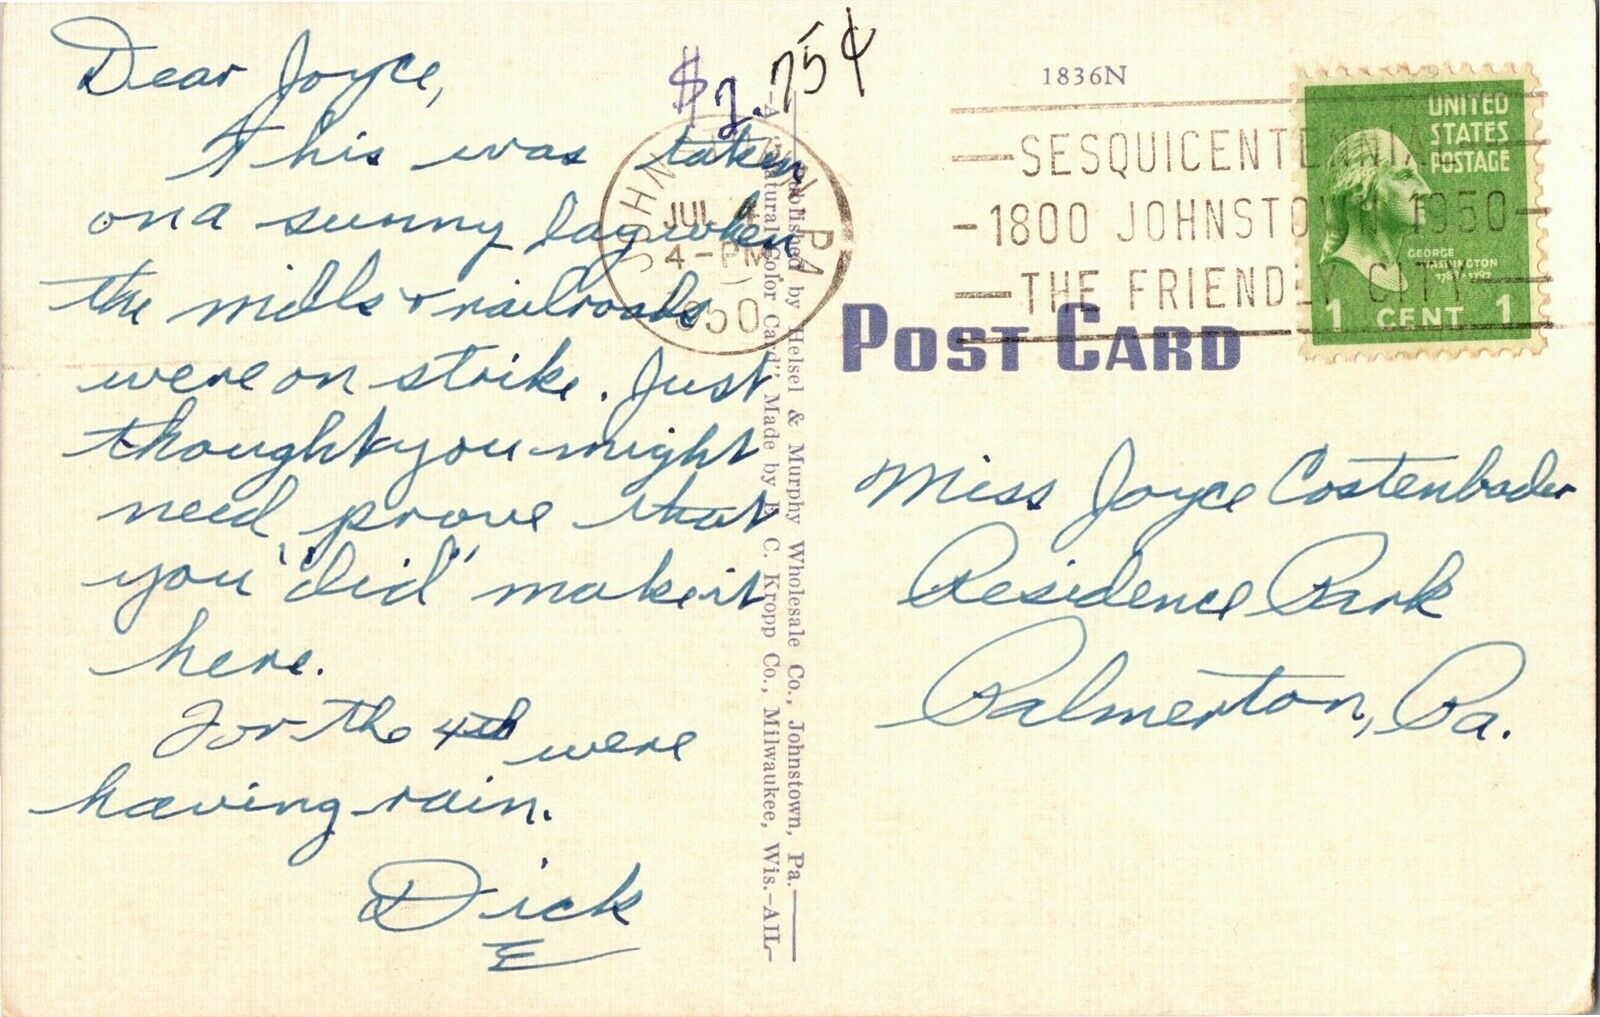 Dear Joyce,
This was taken
on a sunny day when
the mills & railroads
were on strike. Just
thought you might
need prove that
you "did" make it
here.
For the 4th were
having rain.
Dick
$2.
75¢
1836N
JOHNSTOWN, PA.
JUL 4
4-PM
1950
SESQUICENTENNIAL
1800 JOHNSTOWN 1950
THE FRIENDLY CITY
UNITED
STATES
POSTAGE
GEORGE
WASHINGTON
1789-1797
1 CENT 1
POST CARD
Published by Helsel & Murphy Wholesale Co., Johnstown, Pa.
—A "Natural Color Card" Made by E. C. Kropp Co., Milwaukee, Wis.—AIL—
Miss Joyce Costenbader
Residence Park
Palmerton, Pa.